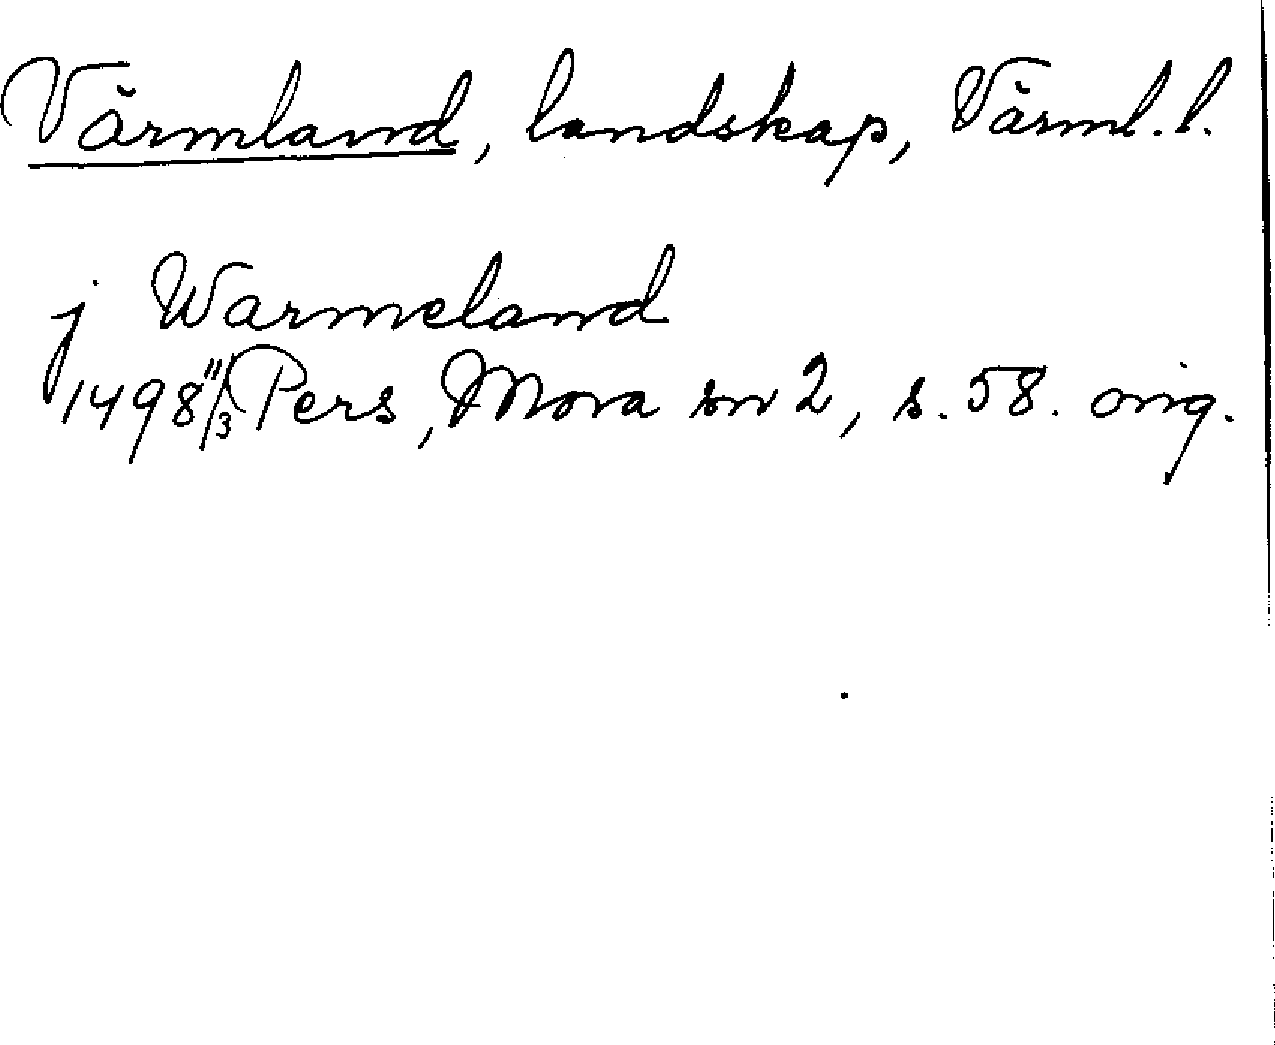 Värmland, landskap, Värml. l.
j Warmeland
1498 11/3 Pers, Mora sn 2, s. 58. orig.